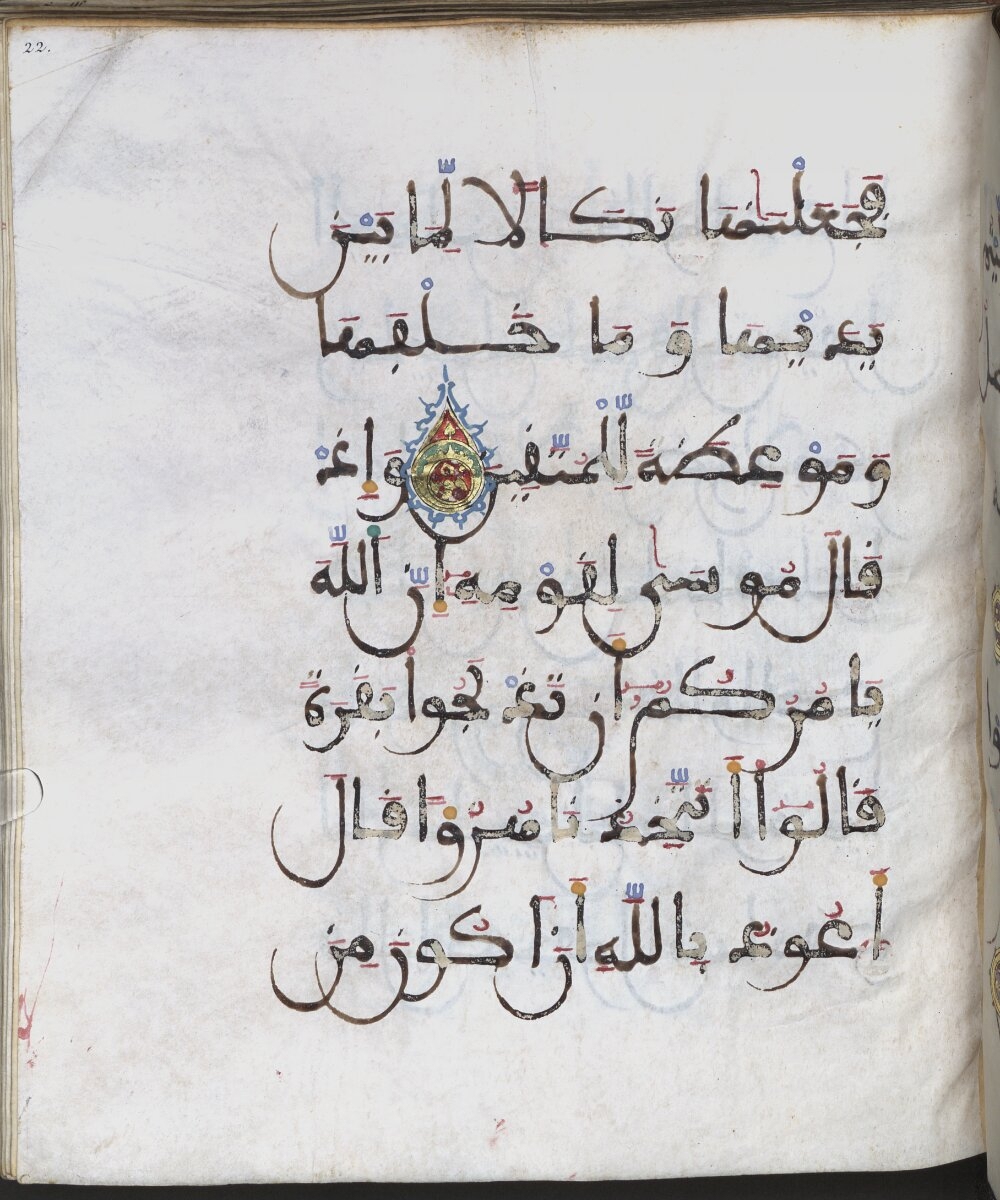 22.
فَجَعَلْنَٰهَا نَكَالاً لِّمَا بَيْنَ
يَدَيْهَا وَمَا خَلْفَهَا
وَمَوْعِظَةً لِّلْمُتَّقِينَ وَإِذْ
قَالَ مُوسَىٰ لِقَوْمِهِ إِنَّ اَللَّهَ
يَامُرُكُمُ أَن تَذْبَحُوا بَقَرَةً
قَالُوا أَتَتَّخِذُنَا هُزُؤاً قَالَ
أَعُوذُ بِاللَّهِ أَنَ اَكُونَ مِنَ